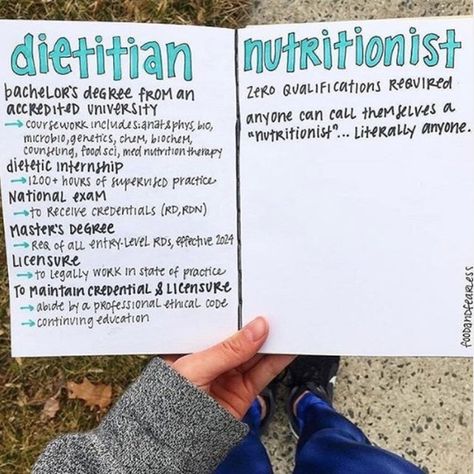 dietitian
bachelor's degree from an
accredited university
→ coursework includes: anat & phys, bio,
microbio, genetics, chem, biochem,
counseling, food sci, med nutrition therapy
dietetic internship
→ 1200+ hours of supervised practice
National exam
→ to receive credentials (RD, RDN)
Master's Degree
→ Req of all entry-level RDs, effective 2024
Licensure
→ to legally work in state of practice
To maintain credential & licensure
→ abide by a professional ethical code
→ continuing education
nutritionist
zero qualifications required
anyone can call themselves a
"nutritionist"... literally anyone.
foodandfearless